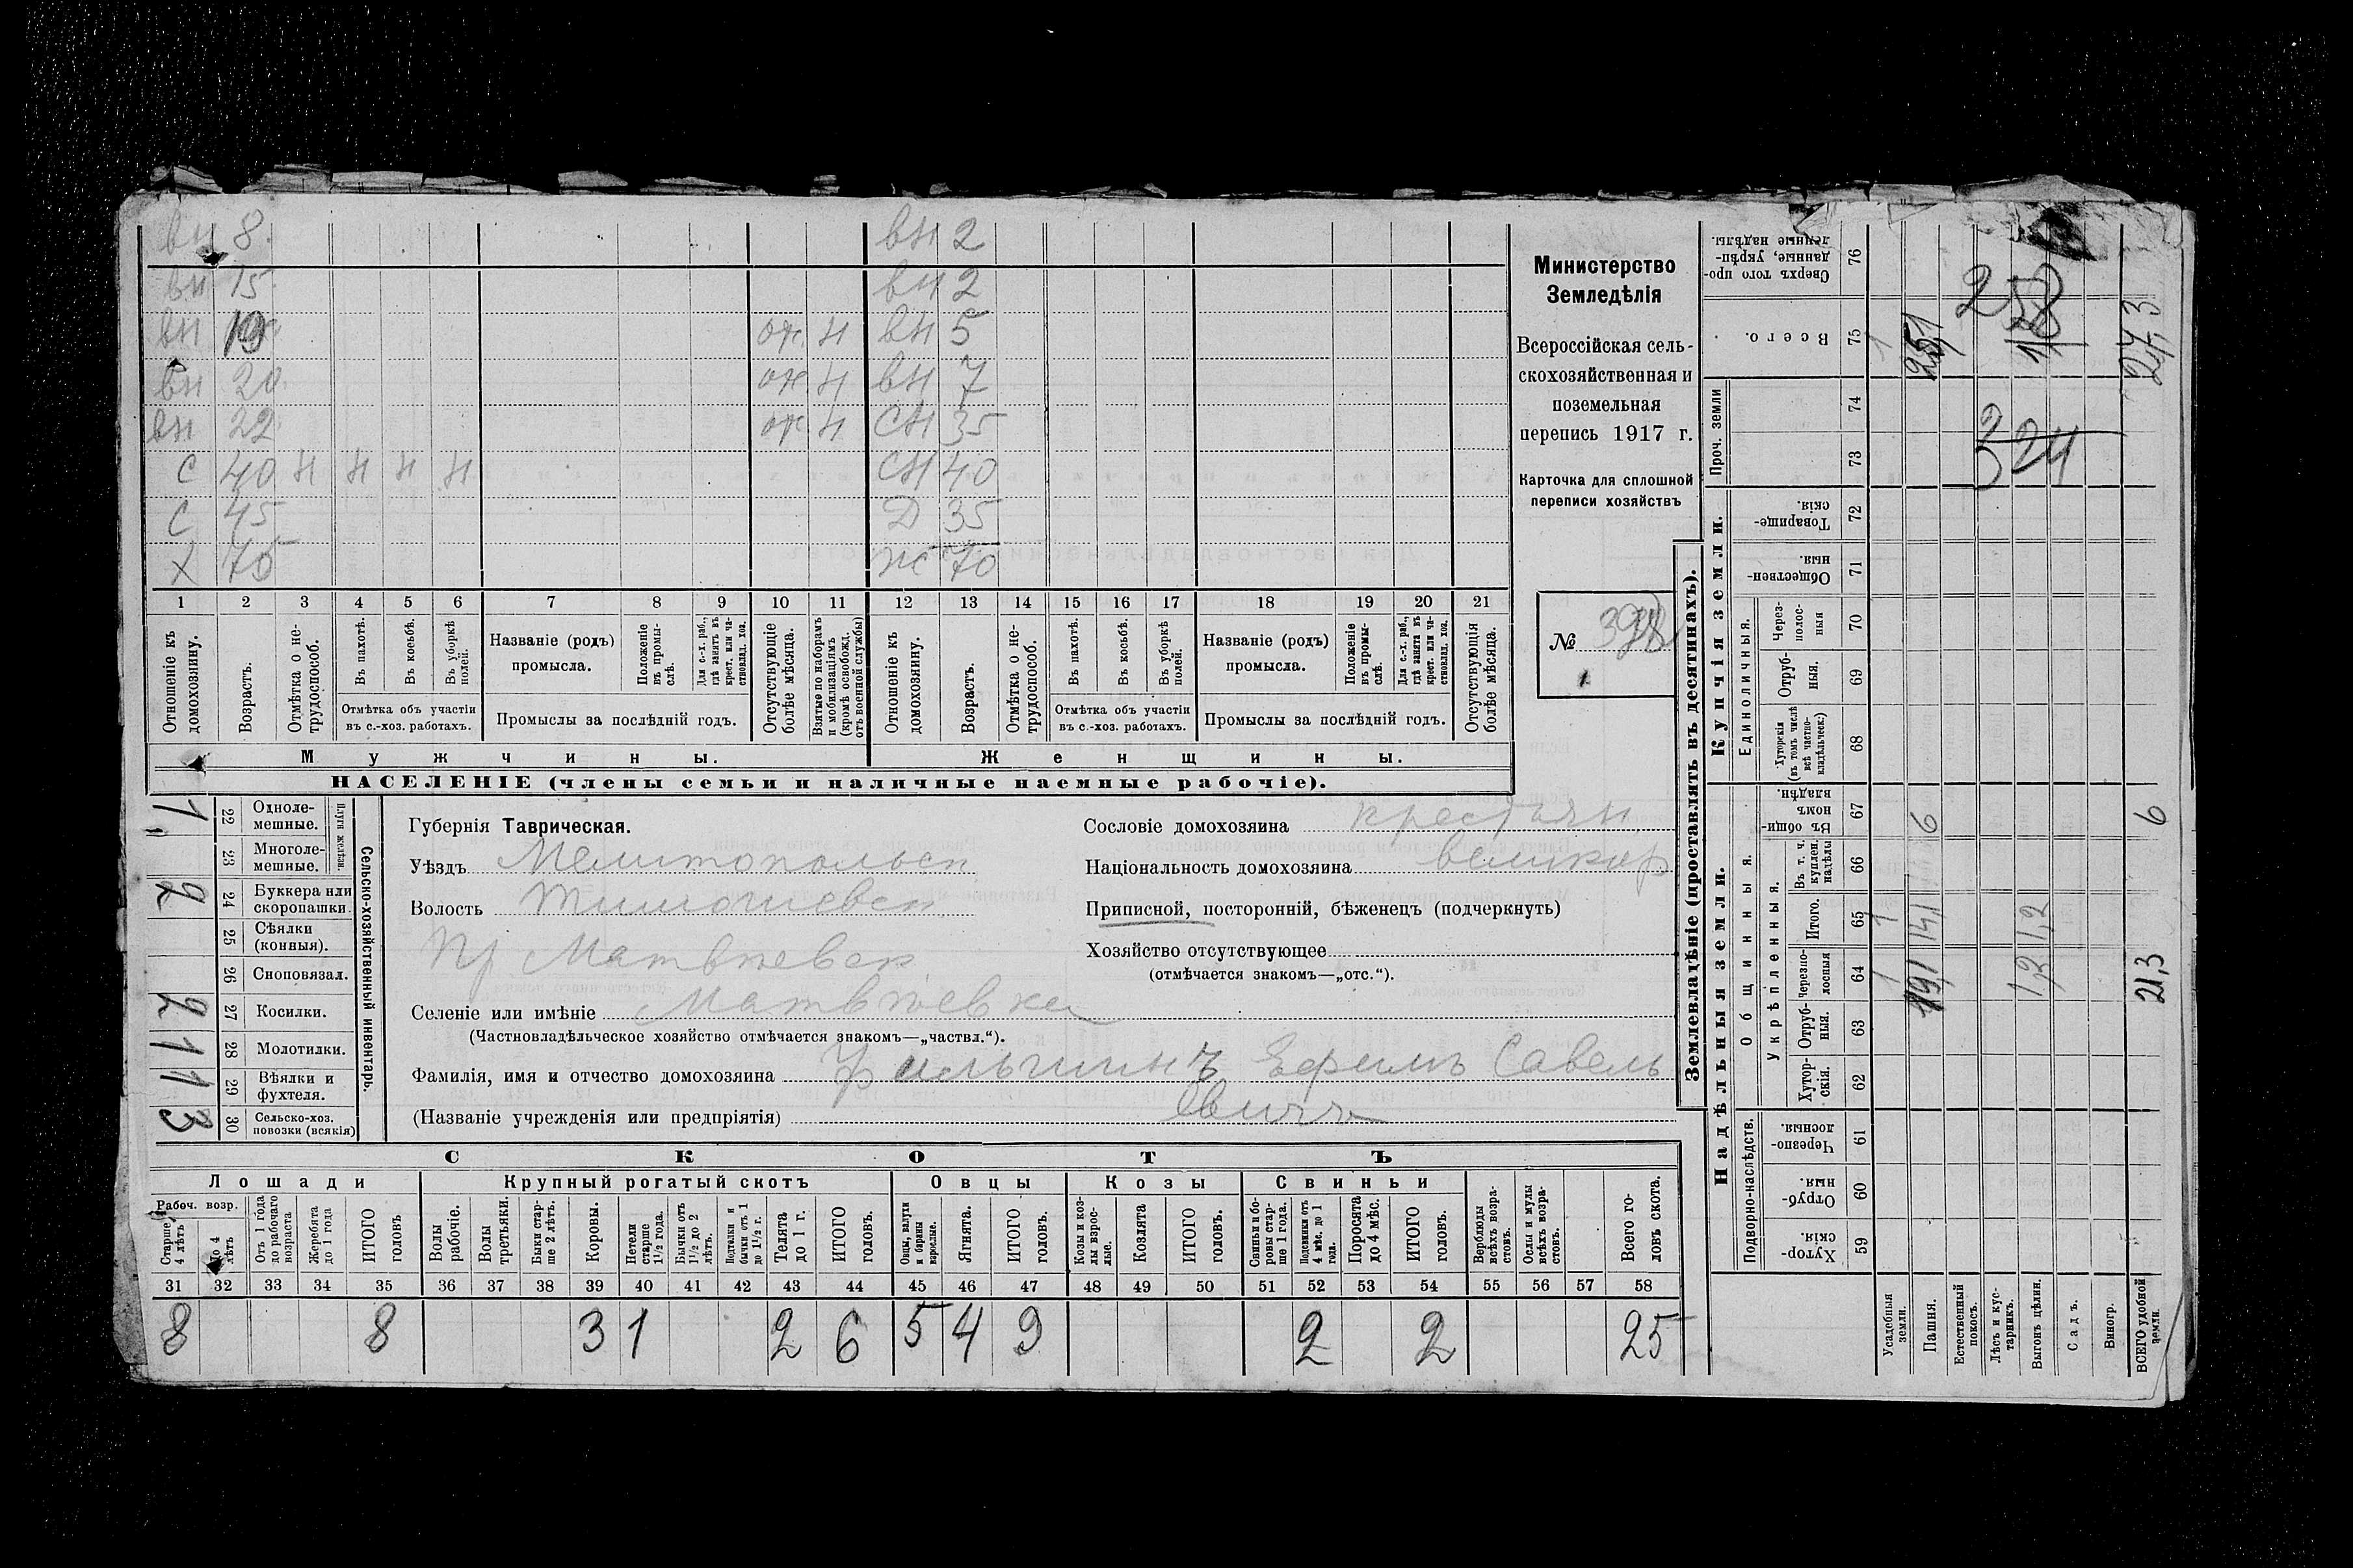 вн 8. вн 2
вн 15. вн 2
вн 19 от. н вн 5
вн 20. от. н вн 7
вн 22. от. н сн 35
с 40 н н н н сн 40
с 45 Д 35
х 70 ж 70
1 2 3 4 5 6 7 8 9 10 11 12 13 14 15 16 17 18 19 20 21
Отношеніе къ домохозяину.
Возрастъ.
Отмѣтка о не-трудоспособ.
Въ пахотѣ.
Въ косьбѣ.
Въ уборкѣ полей.
Отмѣтка объ участіи въ с.-хоз. работахъ.
Названіе (родъ) промысла.
Положеніе въ промы-слѣ.
Для с.-х. раб., гдѣ занятъ въ крест. или ча-стновлад. хоз.
Промыслы за послѣдній годъ.
Отсутствующіе болѣе мѣсяца.
Взятые по наборамъ и мобилизаціямъ (кромѣ освобожд. отъ военной службы)
Отношеніе къ домохозяину.
Возрастъ.
Отмѣтка о не-трудоспособ.
Въ пахотѣ.
Въ косьбѣ.
Въ уборкѣ полей.
Отмѣтка объ участіи въ с.-хоз. работахъ.
Названіе (родъ) промысла.
Положеніе въ промы-слѣ.
Для с.-х. раб., гдѣ занята въ крест. или ча-стновлад. хоз.
Промыслы за послѣдній годъ.
Отсутствующія болѣе мѣсяца.
Мужчины. Женщины.
НАСЕЛЕНІЕ (члены семьи и наличные наемные рабочіе).
Министерство
Земледѣлія
Всероссійская сель-
скохозяйственная и
поземельная
перепись 1917 г.
Карточка для сплошной
переписи хозяйствъ
№
1, 22 Одноле-мешные.
23 Многоле-мешные.
Плуги желѣзн.
2 24 Буккера или скоропашки.
25 Сѣялки (конныя).
26 Сноповязал.
2 27 Косилки.
1 28 Молотилки.
1 29 Вѣялки и фухтеля.
3 30 Сельско-хоз. повозки (всякія)
Сельско-хозяйственный инвентарь.
Губернія Таврическая.
Уѣздъ Мелитопольск.
Волость Тимошевск
Пр Матвѣевск.
Селеніе или имѣніе Матвѣевка
(Частновладѣльческое хозяйство отмѣчается знакомъ—„частвл.“).
Фамилія, имя и отчество домохозяина Ефимъ Савель
(Названіе учрежденія или предпріятія) евичъ
Сословіе домохозяина крестьян.
Національность домохозяина великор
Приписной, посторонній, бѣженецъ (подчеркнуть)
Хозяйство отсутствующее
(отмѣчается знакомъ—„отс.“).
СКОТЪ
Лошади Крупный рогатый скотъ Овцы Козы Свиньи
Рабоч. возр.
Старше 4 лѣтъ
До 4 лѣтъ
Отъ 1 года до рабочаго возраста
Жеребята до 1 года
ИТОГО головъ
Волы рабочіе.
Волы третьяки.
Быки стар-ше 2 лѣтъ.
Коровы.
Нетели старше 1½ года.
Бычки отъ 1½ до 2 лѣтъ.
Подтелки и бычки отъ 1 до 1½ г.
Телята до 1 г.
ИТОГО головъ.
Овцы, валухи и бараны взрослые.
Ягнята.
ИТОГО головъ.
Козы и коз-лы взрос-лые.
Козлята
ИТОГО головъ.
Свиньи и бо-ровы стар-ше 1 года.
Подсвинки отъ 4 мѣс. до 1 года.
Поросята до 4 мѣс.
ИТОГО головъ.
Верблюды всѣхъ возра-стовъ.
Ослы и мулы всѣхъ возра-стовъ.
Всего го-ловъ скота.
31 32 33 34 35 36 37 38 39 40 41 42 43 44 45 46 47 48 49 50 51 52 53 54 55 56 57 58
8 8 3 1 2 6 5 4 9 2 2 25
Землевладѣніе (проставлять въ десятинахъ).
Надѣльныя земли. Купчія земли. Проч. земли
Подворно-наслѣдств. Общинныя. Единоличныя.
Укрѣпленныя.
Хутор-скія. 59
Отруб-ныя. 60
Черезпо-лосныя. 61
Хутор-скія. 62
Отруб-ныя. 63
Черезпо-лосныя 64
Итого. 65
Въ т. ч. куплен. надѣлы 66
Въ общи-номъ владѣн. 67
Хуторскія (въ томъ числѣ всѣ частно-владѣльческ.) 68
Отруб-ныя. 69
Через-полос-ныя 70
Обществен-ныя. 71
Товарище-скія. 72
73
74
Всего. 75
Сверхъ того про-данные, укрѣп-ленные надѣлы. 76
Усадебныя земли. 1 1 1
Пашня. 191 6 251
Естественный покосъ.
Лѣсъ и кус-тарникъ.
Выгонъ цѣлин. 1,2 1,2
Садъ.
Виногр.
ВСЕГО удобной земли. 21,3 6 27,3
258
324